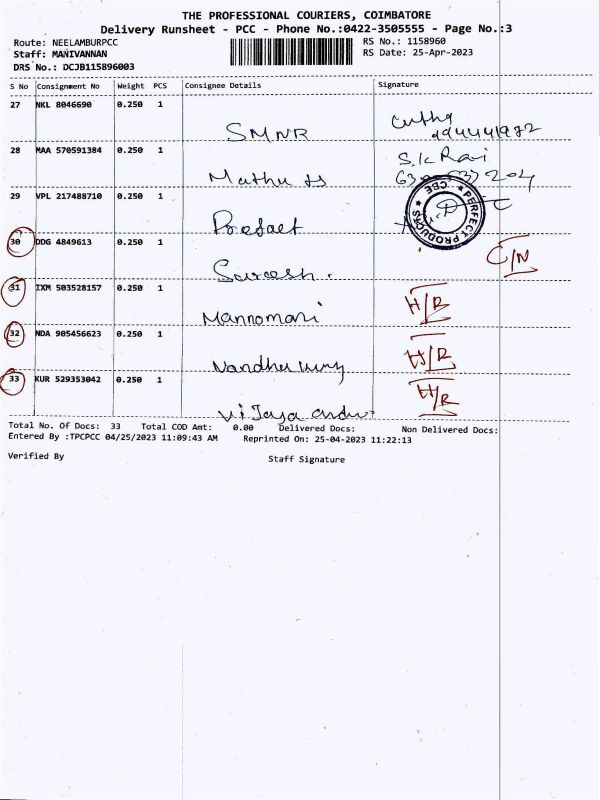 THE PROFESSIONAL COURIERS, COIMBATORE
Delivery Runsheet - PCC - Phone No.:0422-3505555 - Page No.:3
Route: NEELAMBURPCC
Staff: MANIVANNAN
DRS No.: DCJB115896003
RS No.: 1158960
RS Date: 25-Apr-2023
S No Consignment No Weight PCS Consignee Details Signature
27 NKL 8046690 0.250 1
SMNR
28 MAA 570591384 0.250 1
S.K Ravi
29 VPL 217488710 0.250 1
PERFECT PRODUCTS * CBE *
30 DDG 4849613 0.250 1
C/N
31 IXM 503528157 0.250 1
Mannomani H/R
32 NDA 905456623 0.250 1
H/R
33 KUR 529353042 0.250 1
H/R
Total No. Of Docs: 33 Total COD Amt: 0.00 Delivered Docs: Non Delivered Docs:
Entered By :TPCPCC 04/25/2023 11:09:43 AM Reprinted On: 25-04-2023 11:22:13
Verified By Staff Signature